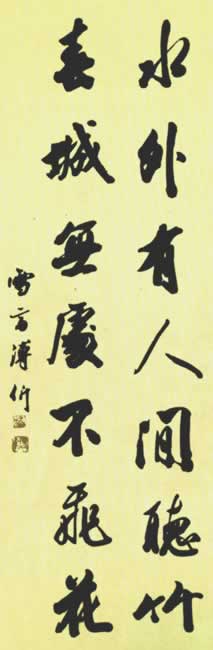 水外有人間聽竹
春城無處不飛花
雪齋溥伒